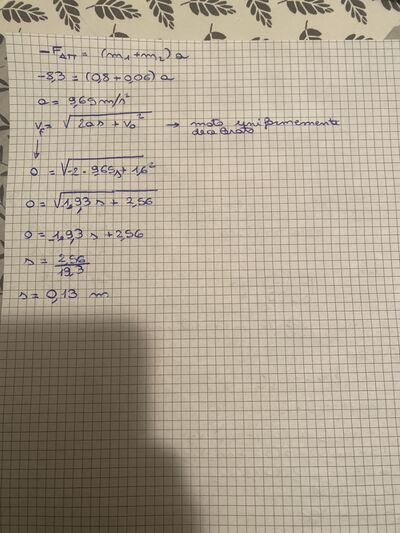 -F_ATT = (m₁ + m₂) a
-8,3 = (0,8 + 0,06) a
a = 9,65 m/s²
V_f = √(2as + V₀²) → moto uniformemente
decelerato
↓
0 = √(-2 · 9,65 s + 1,6²)
0 = √(-1,93 s + 2,56)
0 = -1,93 s + 2,56
s = 2,56 / 19,3
s = 0,13 m